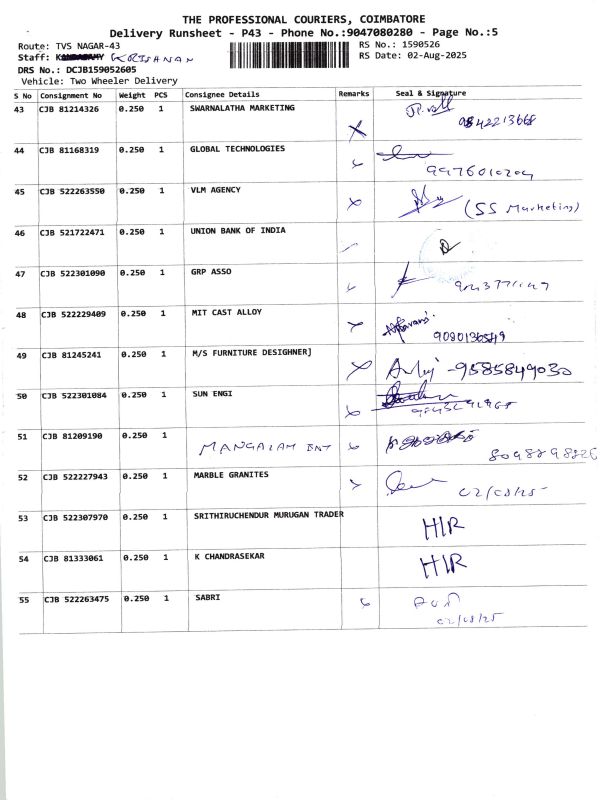 THE PROFESSIONAL COURIERS, COIMBATORE
Delivery Runsheet - P43 - Phone No.:9047080280 - Page No.:5
Route: TVS NAGAR-43 RS No.: 1590526
Staff: KRISHNAN RS Date: 02-Aug-2025
DRS No.: DCJB159052605
Vehicle: Two Wheeler Delivery
S No Consignment No Weight PCS Consignee Details Remarks Seal & Signature
43 CJB 81214326 0.250 1 SWARNALATHA MARKETING
9842213668
44 CJB 81168319 0.250 1 GLOBAL TECHNOLOGIES
45 CJB 522263550 0.250 1 VLM AGENCY
(SS Marketing)
46 CJB 521722471 0.250 1 UNION BANK OF INDIA
47 CJB 522301090 0.250 1 GRP ASSO
48 CJB 522229409 0.250 1 MIT CAST ALLOY
49 CJB 81245241 0.250 1 M/S FURNITURE DESIGHNER]
-9585849030
50 CJB 522301084 0.250 1 SUN ENGI
51 CJB 81209190 0.250 1 MANGALAM
52 CJB 522227943 0.250 1 MARBLE GRANITES
02/08/25
53 CJB 522307970 0.250 1 SRITHIRUCHENDUR MURUGAN TRADER
H/R
54 CJB 81333061 0.250 1 K CHANDRASEKAR
H/R
55 CJB 522263475 0.250 1 SABRI
02/08/25